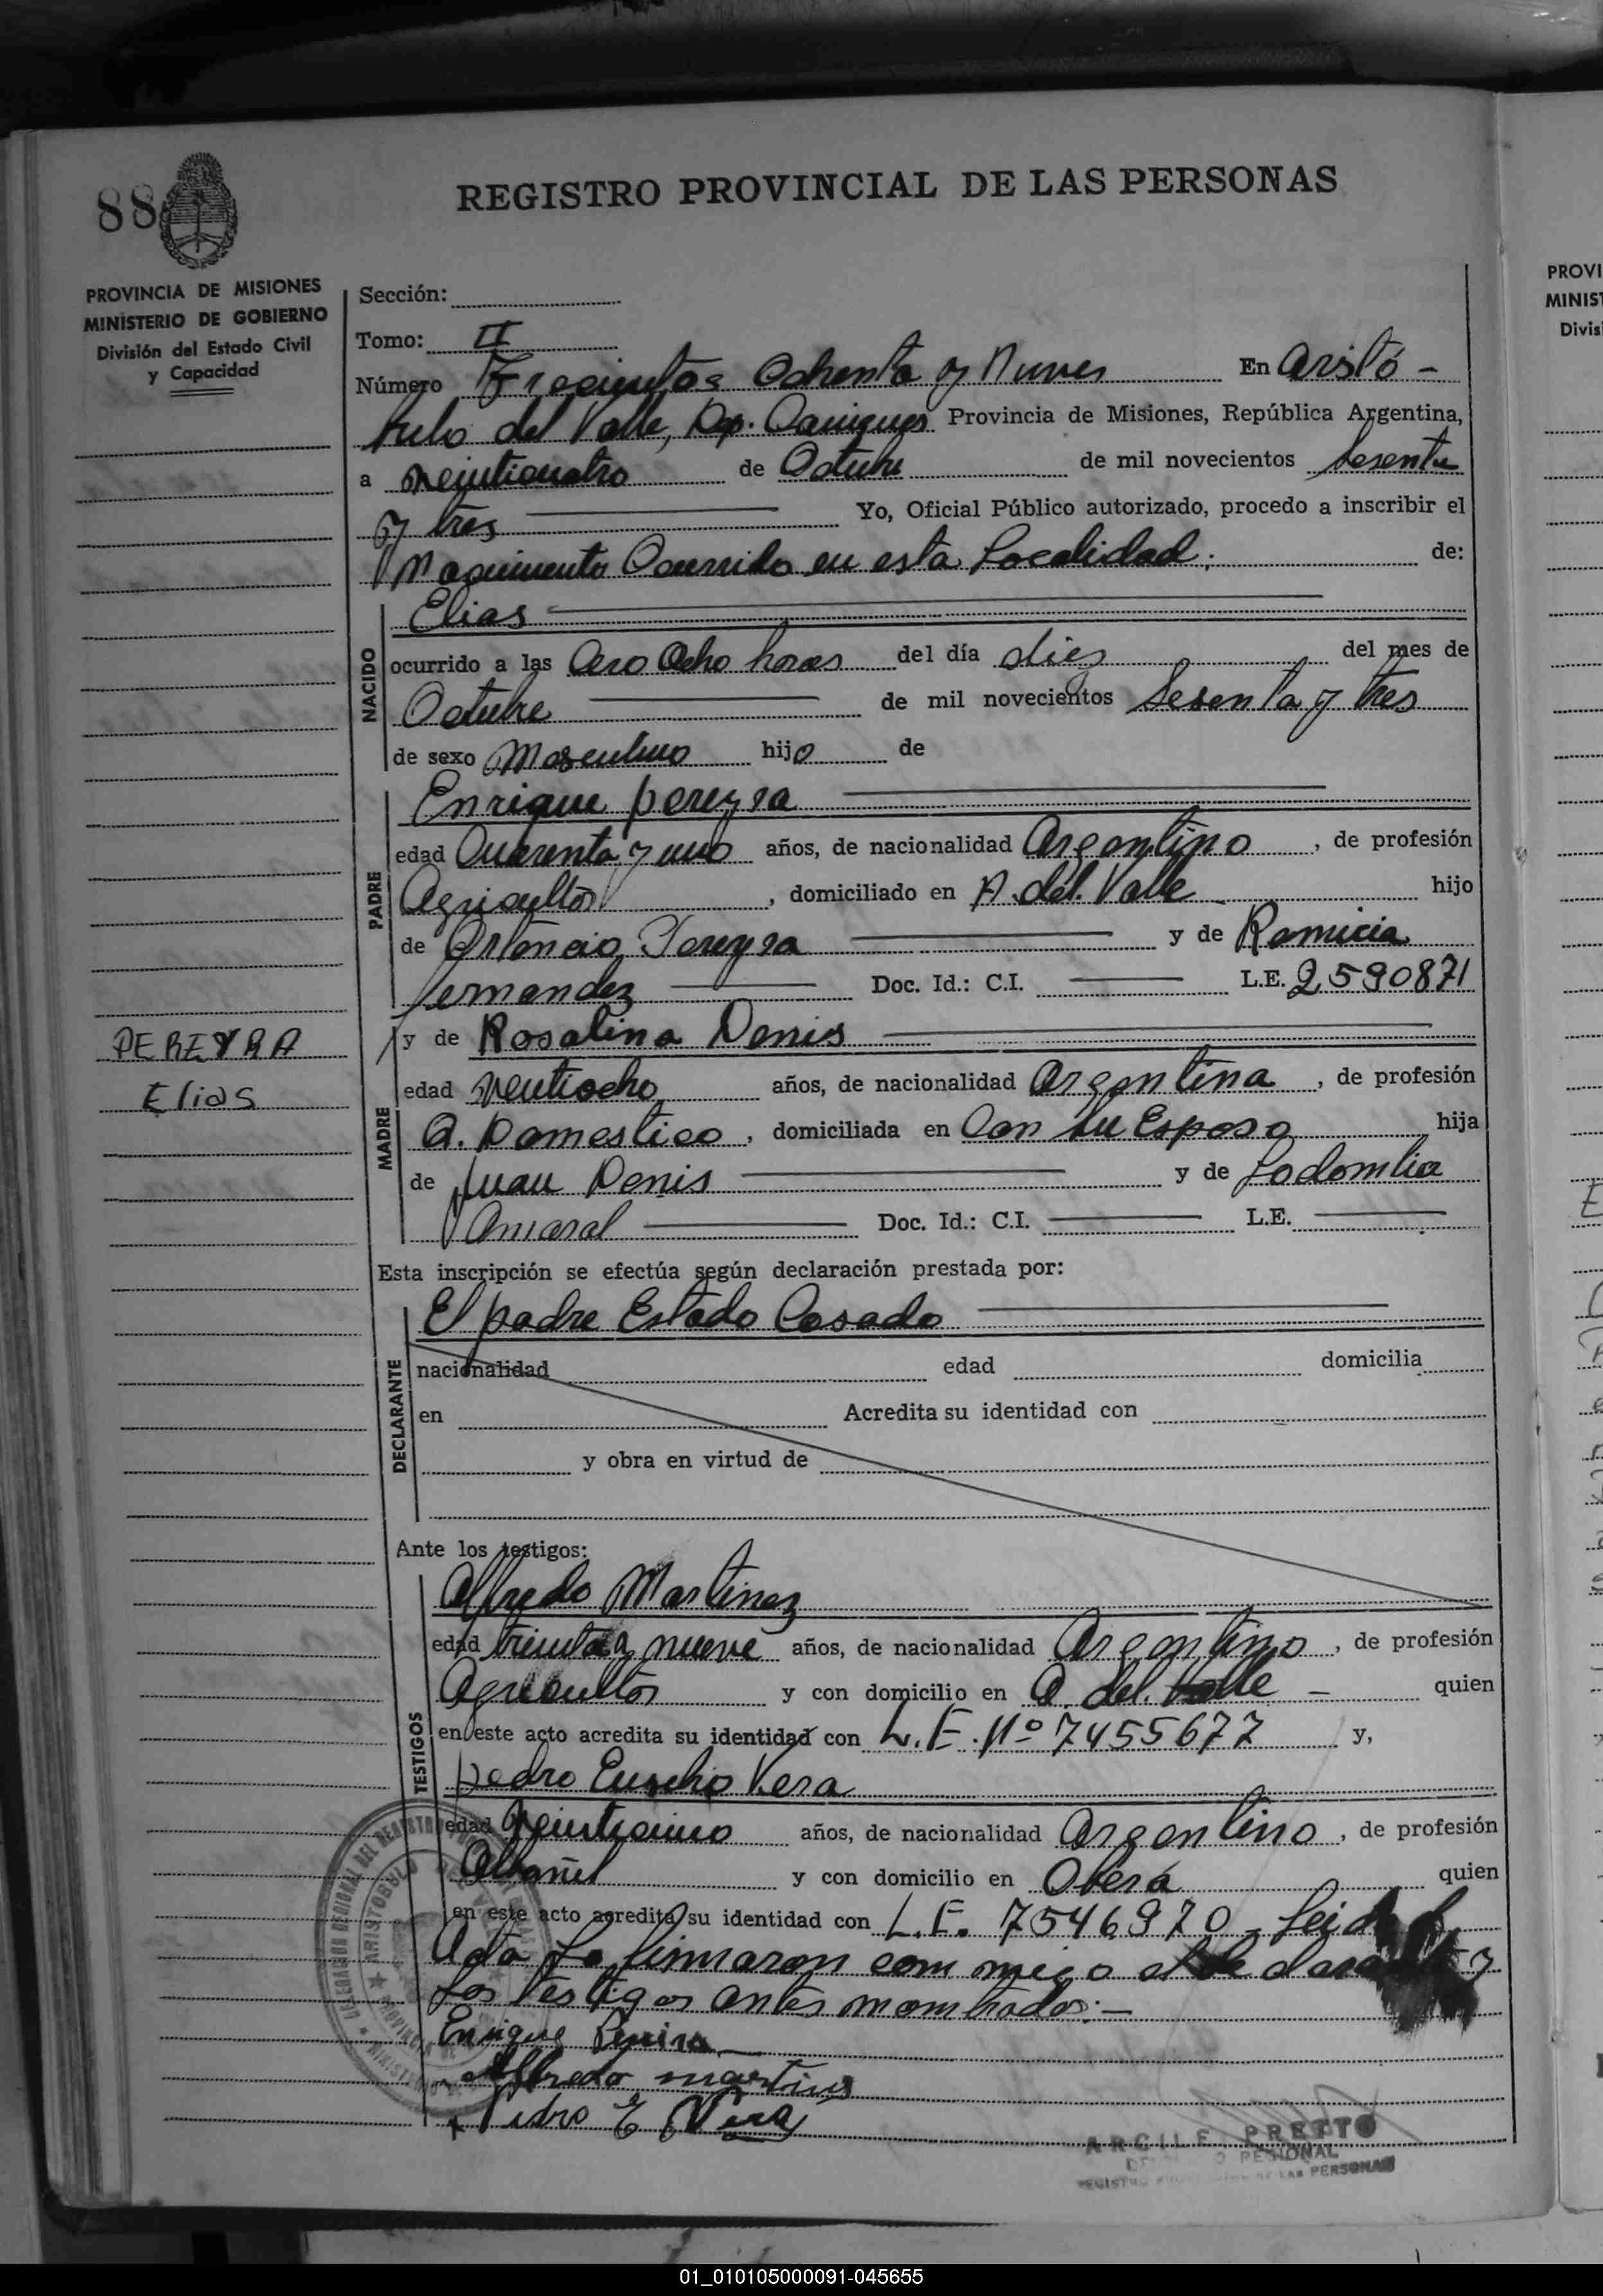 88
REGISTRO PROVINCIAL DE LAS PERSONAS
PROVINCIA DE MISIONES
MINISTERIO DE GOBIERNO
División del Estado Civil
y Capacidad
Sección:
Tomo: II
Número Trecientos Ochenta y Nueve En Aristó-
bulo del Valle, Dep. Cainguas Provincia de Misiones, República Argentina,
a veinticuatro de Octubre de mil novecientos sesenta
y tres Yo, Oficial Público autorizado, procedo a inscribir el
Nacimiento Ocurrido en esta Localidad. de:
NACIDO
Elias
ocurrido a las Cero Ocho horas del día diez del mes de
Octubre de mil novecientos Sesenta y tres
de sexo Masculino hijo de
PADRE
Enrique Pereyra
edad Cuarenta y uno años, de nacionalidad Argentino, de profesión
Agricultor, domiciliado en A. del Valle hijo
de Ortencio Pereyra y de Romicia
Fernandez Doc. Id.: C.I. L.E. 2590871
y de Rosalina Denis
PEREYRA
Elias
MADRE
edad veintiocho años, de nacionalidad Argentina, de profesión
Q. Domestico, domiciliada en Con su Esposo hija
de Juan Denis y de Lodomlia
Amaral Doc. Id.: C.I. L.E.
Esta inscripción se efectúa según declaración prestada por:
DECLARANTE
El padre Estado Casado
nacionalidad edad domicilia
en Acredita su identidad con
y obra en virtud de
Ante los testigos:
TESTIGOS
Alfredo Martinez
edad treinta y nueve años, de nacionalidad Argentino, de profesión
Agricultor y con domicilio en A. del Valle quien
en este acto acredita su identidad con L.E. Nº 7455677 y,
Pedro Eusebio Vera
edad Veinticinco años, de nacionalidad Argentino, de profesión
Albañil y con domicilio en Oberá quien
en este acto acredita su identidad con L.E. 7546970 - Leida
Acta La firmaron com migo el y
los testigos antes nombrados.-
Enrique
Alfredo martines
Pedro E Vera
ARGILE PRETTO
REGIONAL
PERSONAS
ARISTOBULO
PROVI
MINIST
Divis
01_010105000091-045655